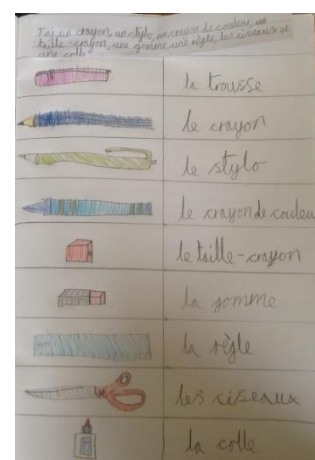 J'ai un crayon, un stylo, un crayon de couleur, un
taille-crayon, une gomme, une règle, les ciseaux et
une colle
la trousse
le crayon
le stylo
le crayon de couleu
le taille-crayon
la gomme
la règle
les ciseaux
la colle